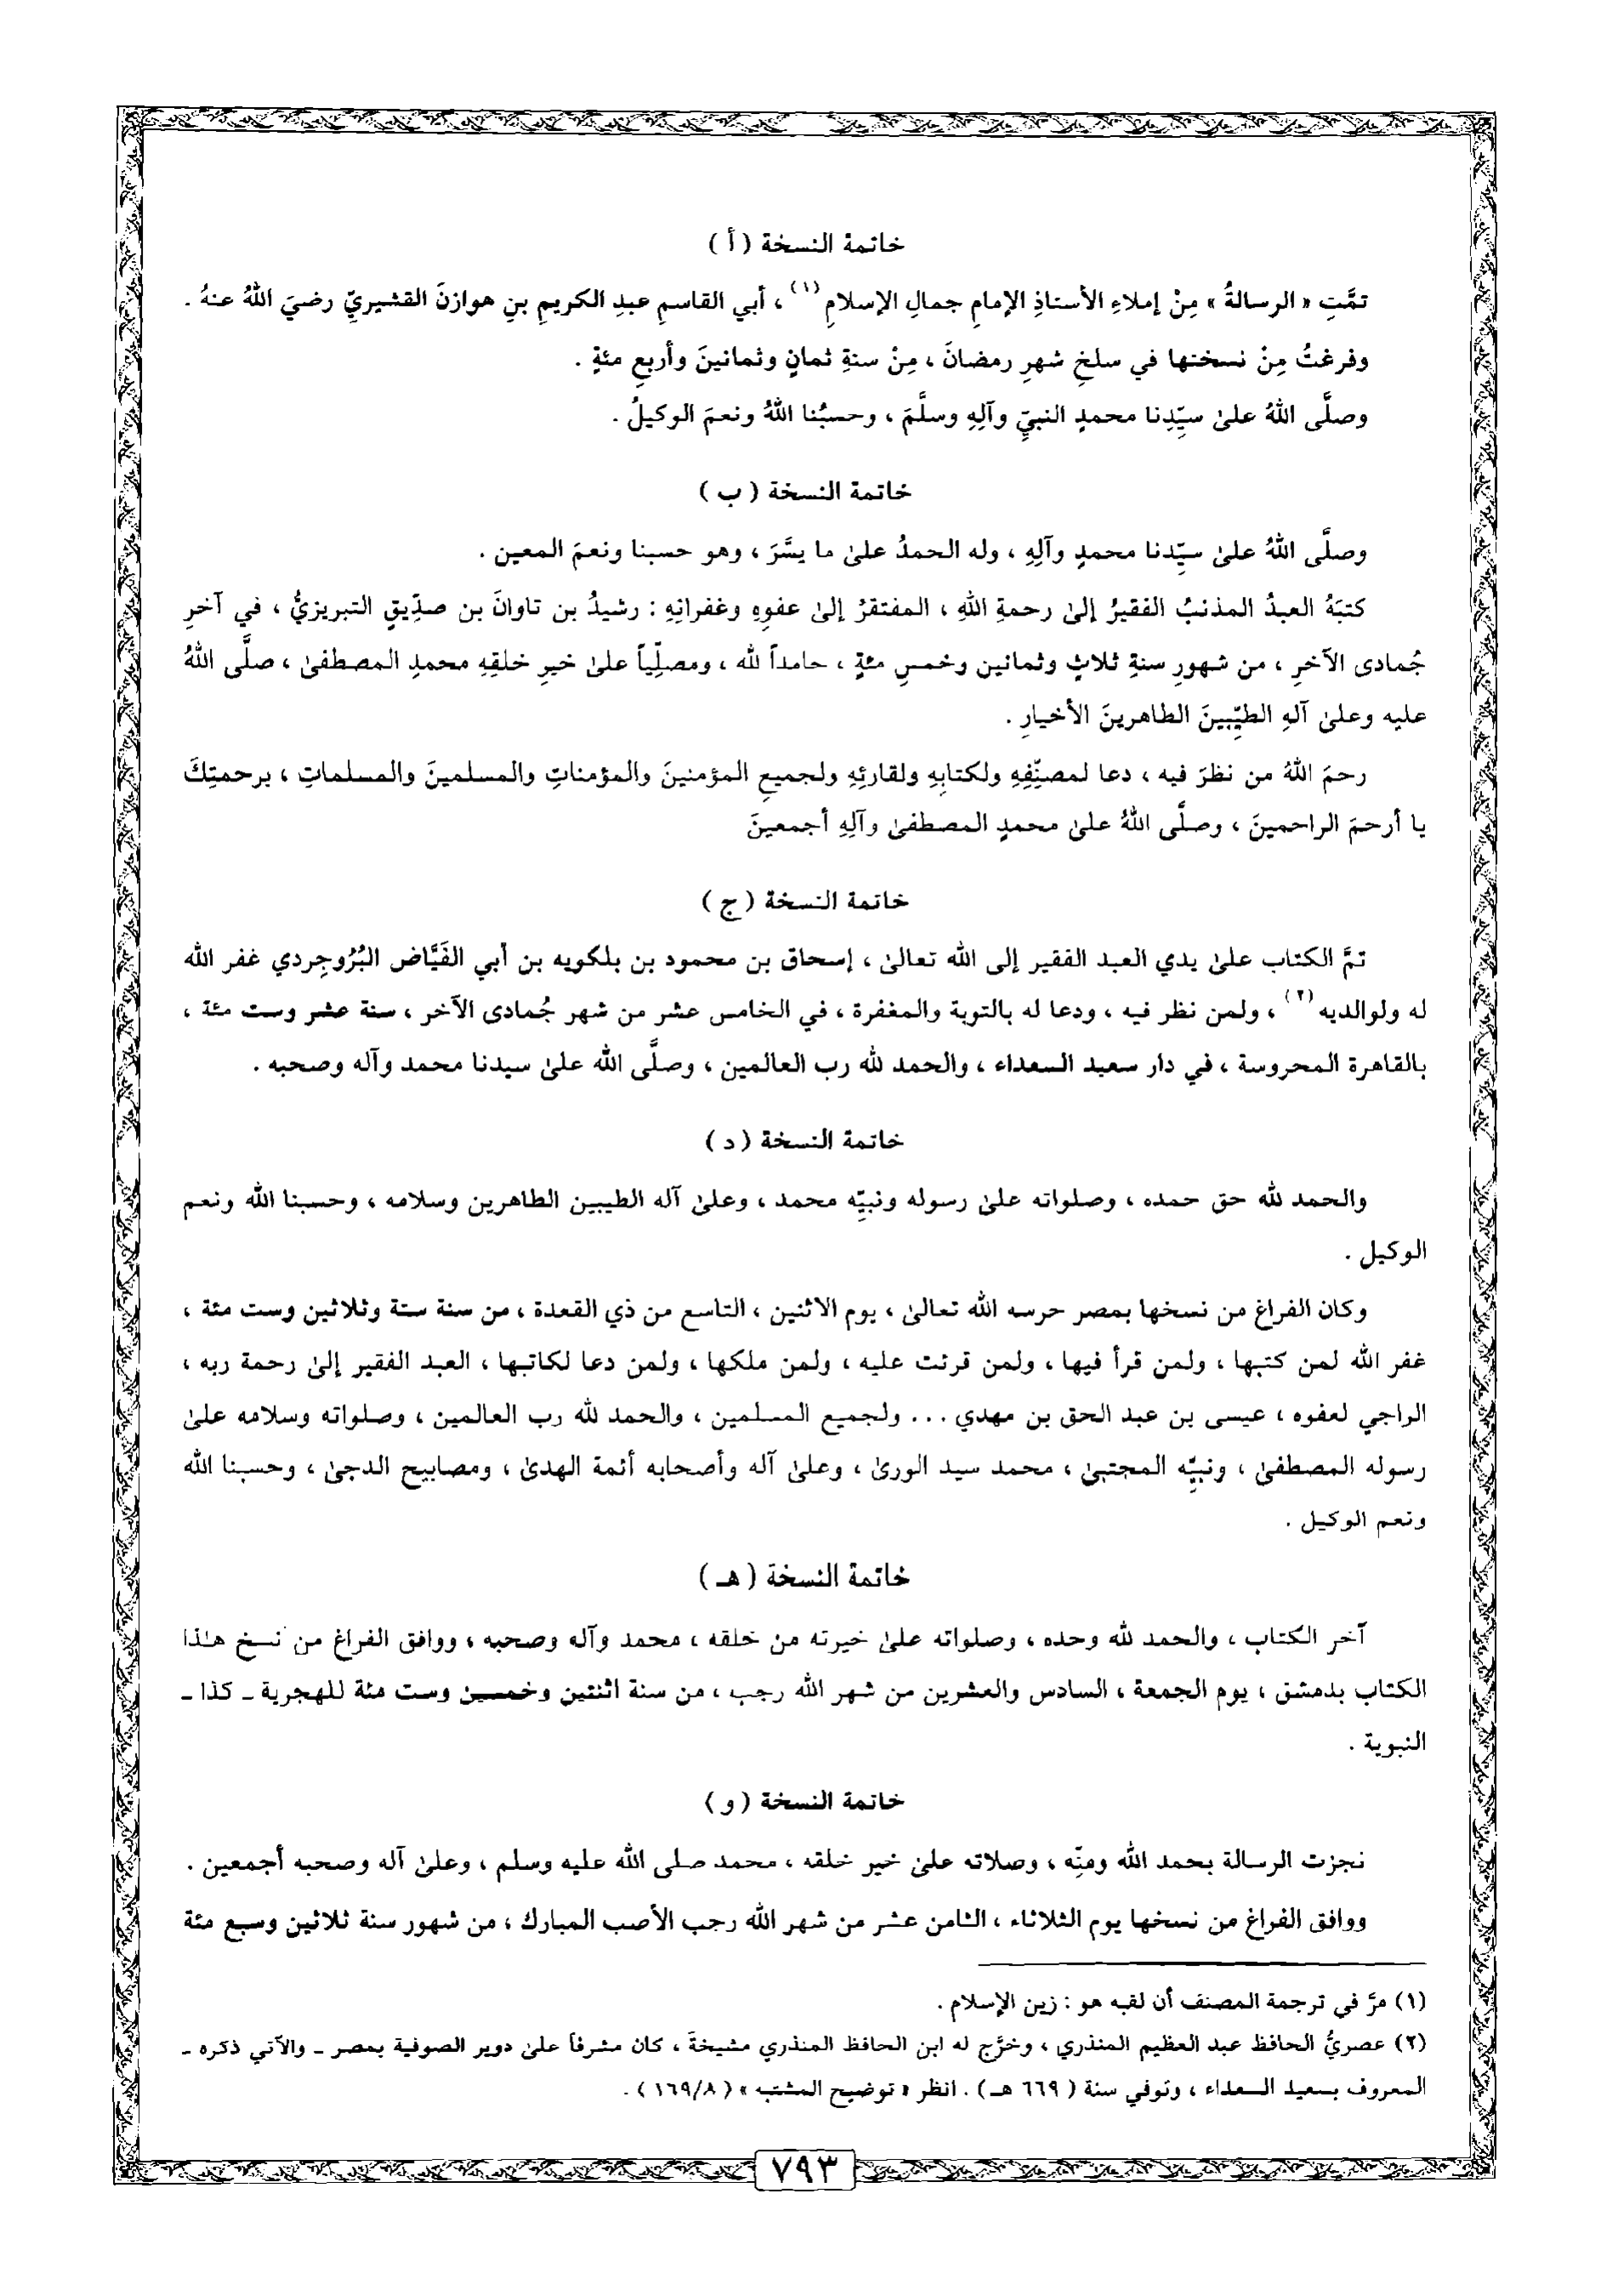 خاتمة النسخة ( أ )
تمَّتِ « الرسالةُ » مِنْ إملاءِ الأستاذِ الإمامِ جمالِ الإسلامِ(١) ، أبي القاسمِ عبدِ الكريمِ بنِ هوازنَ القشيريِّ رضيَ اللهُ عنهُ .
وفرغتُ مِنْ نسختها في سلخِ شهرِ رمضانَ ، مِنْ سنةِ ثمانٍ وثمانينَ وأربعِ مئةٍ .
وصلَّى اللهُ علىٰ سيِّدِنا محمدٍ النبيِّ وآلِهِ وسلَّمَ ، وحسبُنا اللهُ ونعمَ الوكيلُ .
خاتمة النسخة ( ب )
وصلَّى اللهُ علىٰ سيِّدنا محمدٍ وآلِهِ ، وله الحمدُ علىٰ ما يسَّرَ ، وهو حسبنا ونعمَ المعين .
كتبَهُ العبدُ المذنبُ الفقيرُ إلىٰ رحمةِ اللهِ ، المفتقرُ إلىٰ عفوِهِ وغفرانِهِ : رشيدُ بن تاوانَ بن صدِّيقٍ التبريزيُّ ، في آخرِ
جُمادى الآخرِ ، من شهورِ سنةِ ثلاثٍ وثمانين وخمسِ مئةٍ ، حامداً لله ، ومصلِّياً علىٰ خيرِ خلقِهِ محمدٍ المصطفىٰ ، صلَّى اللهُ
عليه وعلىٰ آلهِ الطيِّبينَ الطاهرينَ الأخيارِ .
رحمَ اللهُ من نظرَ فيه ، دعا لمصنِّفِهِ ولكتابِهِ ولقارئِهِ ولجميعِ المؤمنينَ والمؤمناتِ والمسلمينَ والمسلماتِ ، برحمتِكَ
يا أرحمَ الراحمينَ ، وصلَّى اللهُ علىٰ محمدٍ المصطفىٰ وآلِهِ أجمعينَ
خاتمة النسخة ( ج )
تمَّ الكتاب علىٰ يدي العبد الفقير إلى الله تعالىٰ ، إسحاق بن محمود بن بلكويه بن أبي الفَيَّاض البُرُوجِردي غفر الله
له ولوالديه(٢) ، ولمن نظر فيه ، ودعا له بالتوبة والمغفرة ، في الخامس عشر من شهر جُمادى الآخر ، سنة عشر وست مئة ،
بالقاهرة المحروسة ، في دار سعيد السعداء ، والحمد لله رب العالمين ، وصلَّى الله علىٰ سيدنا محمد وآله وصحبه .
خاتمة النسخة ( د )
والحمد لله حق حمده ، وصلواته علىٰ رسوله ونبيِّه محمد ، وعلىٰ آله الطيبين الطاهرين وسلامه ، وحسبنا الله ونعم
الوكيل .
وكان الفراغ من نسخها بمصر حرسه الله تعالىٰ ، يوم الاثنين ، التاسع من ذي القعدة ، من سنة ستة وثلاثين وست مئة ،
غفر الله لمن كتبها ، ولمن قرأ فيها ، ولمن قرئت عليه ، ولمن ملكها ، ولمن دعا لكاتبها ، العبد الفقير إلىٰ رحمة ربه ،
الراجي لعفوه ، عيسى بن عبد الحق بن مهدي ... ولجميع المسلمين ، والحمد لله رب العالمين ، وصلواته وسلامه علىٰ
رسوله المصطفىٰ ، ونبيِّه المجتبىٰ ، محمد سيد الورىٰ ، وعلىٰ آله وأصحابه أئمة الهدىٰ ، ومصابيح الدجىٰ ، وحسبنا الله
ونعم الوكيل .
خاتمة النسخة ( هـ )
آخر الكتاب ، والحمد لله وحده ، وصلواته علىٰ خيرته من خلقه ، محمد وآله وصحبه ، ووافق الفراغ من نسخ هـٰذا
الكتاب بدمشق ، يوم الجمعة ، السادس والعشرين من شهر الله رجب ، من سنة اثنتين وخمسين وست مئة للهجرية ـ كذا ـ
النبوية .
خاتمة النسخة ( و )
نجزت الرسالة بحمد الله ومنِّه ، وصلاته علىٰ خير خلقه ، محمد صلى الله عليه وسلم ، وعلىٰ آله وصحبه أجمعين .
ووافق الفراغ من نسخها يوم الثلاثاء ، الثامن عشر من شهر الله رجب الأصب المبارك ، من شهور سنة ثلاثين وسبع مئة
(١) مرَّ في ترجمة المصنف أن لقبه هو : زين الإسلام .
(٢) عصريُّ الحافظ عبد العظيم المنذري ، وخرَّج له ابن الحافظ المنذري مشيخةً ، كان مشرفاً علىٰ دوير الصوفية بمصر ـ والآتي ذكره ـ
المعروف بسعيد السعداء ، وتوفي سنة ( ٦٦٩ هـ ) . انظر « توضيح المشتبه » ( ١٦٩/٨ ) .
٧٩٣